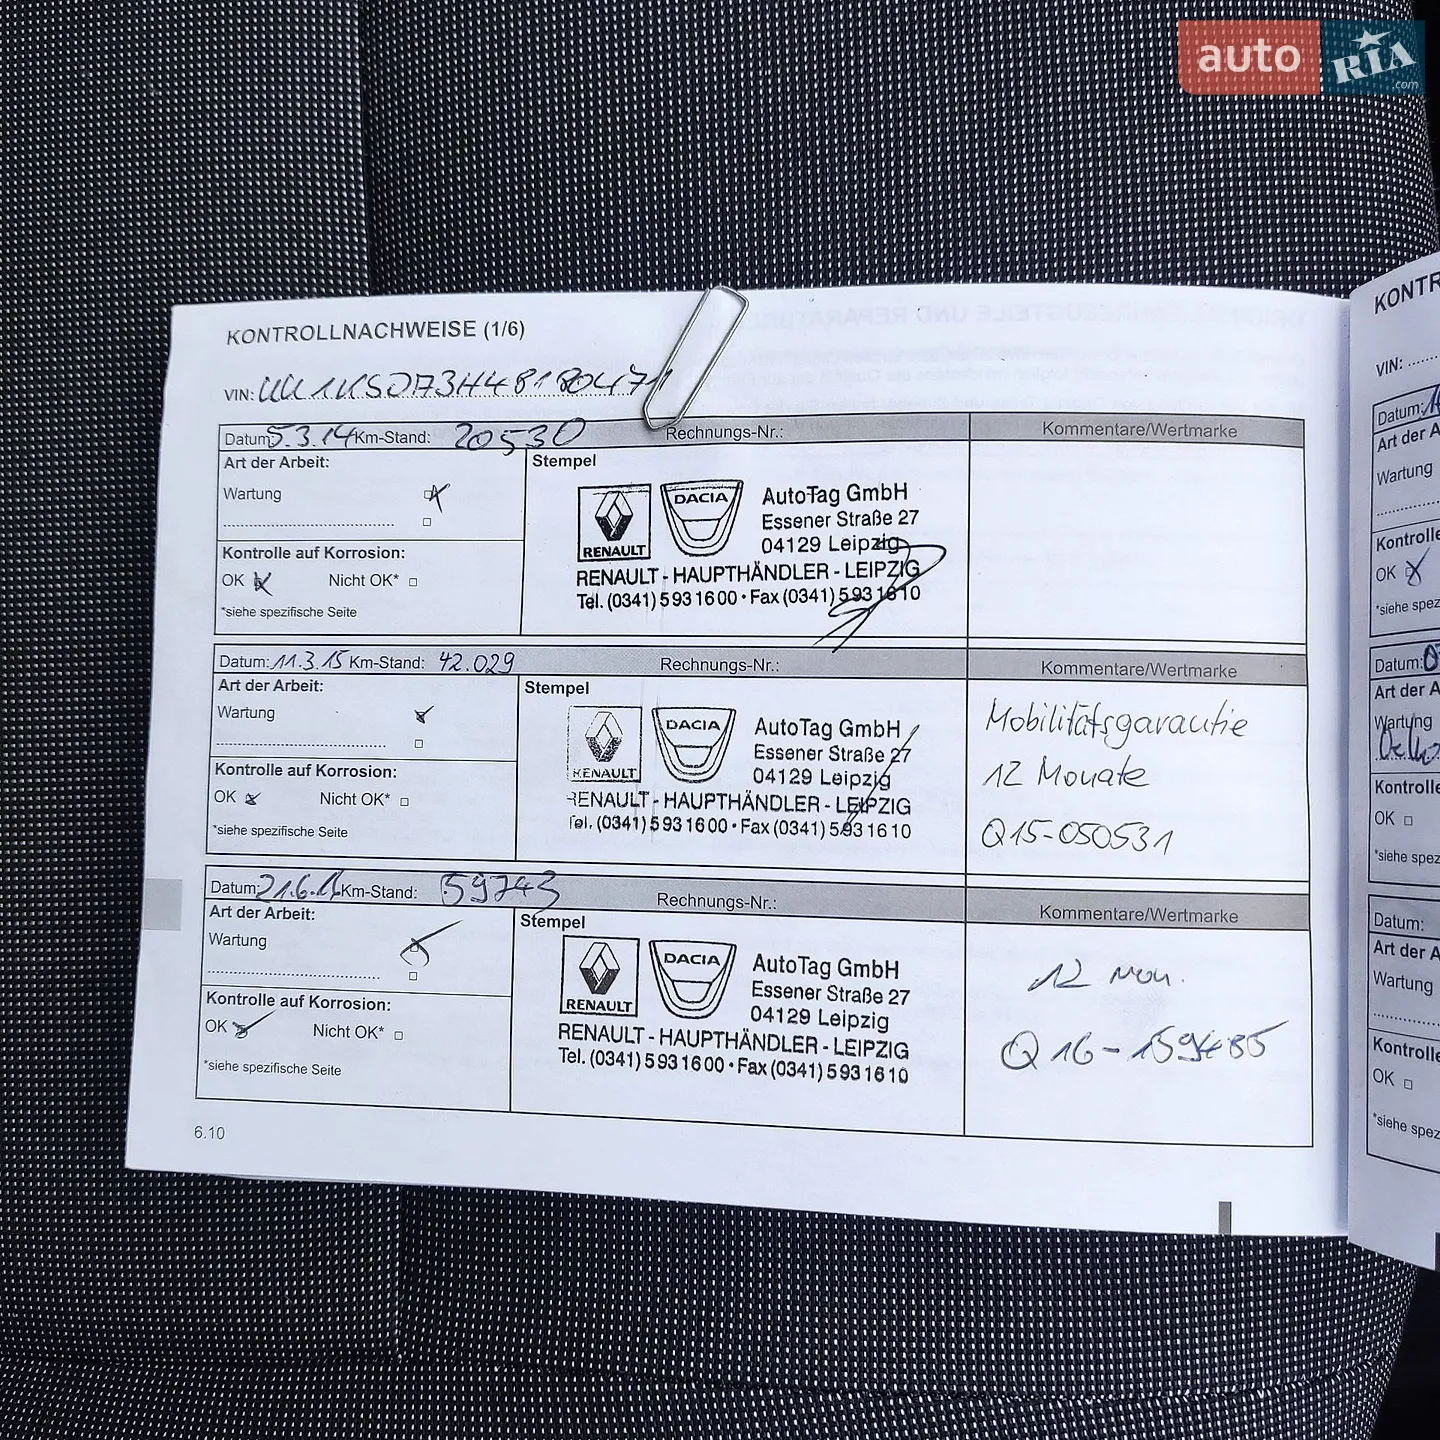 auto RIA.com
KONTROLLNACHWEISE (1/6)
VIN: UU1KSDA3H48180471
Datum: 5.3.14 Km-Stand: 20530 Rechnungs-Nr.: Kommentare/Wertmarke
Art der Arbeit: Stempel
Wartung
RENAULT DACIA AutoTag GmbH
Essener Straße 27
04129 Leipzig
RENAULT - HAUPTHÄNDLER - LEIPZIG
Tel. (0341) 5 93 16 00 • Fax (0341) 5 93 16 10
Kontrolle auf Korrosion:
OK Nicht OK*
*siehe spezifische Seite
Datum: 11.3.15 Km-Stand: 42.029 Rechnungs-Nr.: Kommentare/Wertmarke
Art der Arbeit: Stempel
Wartung
RENAULT DACIA AutoTag GmbH
Essener Straße 27
04129 Leipzig
RENAULT - HAUPTHÄNDLER - LEIPZIG
Tel. (0341) 5 93 16 00 • Fax (0341) 5 93 16 10
Mobilitätsgarantie
12 Monate
Q15-050531
Kontrolle auf Korrosion:
OK Nicht OK*
*siehe spezifische Seite
Datum: 21.6.16 Km-Stand: 59743 Rechnungs-Nr.: Kommentare/Wertmarke
Art der Arbeit: Stempel
Wartung
RENAULT DACIA AutoTag GmbH
Essener Straße 27
04129 Leipzig
RENAULT - HAUPTHÄNDLER - LEIPZIG
Tel. (0341) 5 93 16 00 • Fax (0341) 5 93 16 10
12 Mon.
Q16-159485
Kontrolle auf Korrosion:
OK Nicht OK*
*siehe spezifische Seite
6.10
KONTR
VIN:
Datum:
Art der A
Wartung
Kontrolle
OK
*siehe spez
Datum:
Art der A
Wartung
Kontrolle
OK
*siehe spez
Datum:
Art der A
Wartung
Kontrolle
OK
*siehe spez